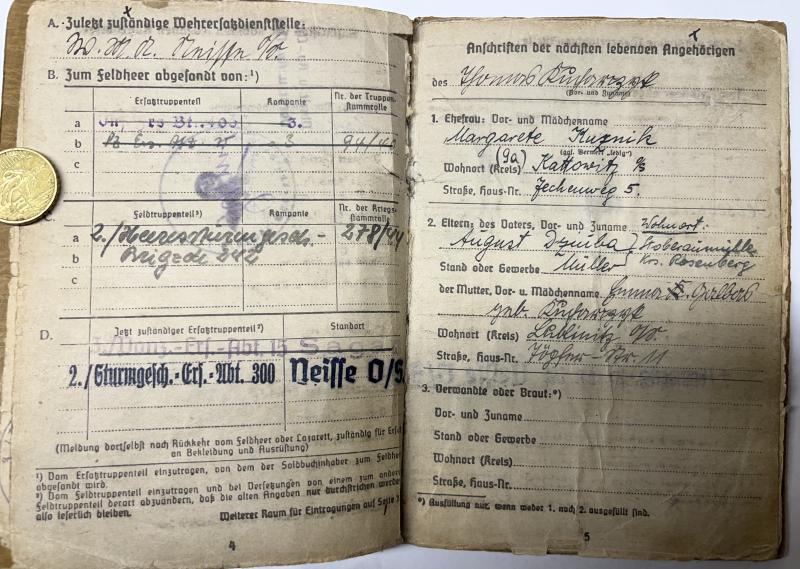 A. Zuletzt zuständige Wehrersatzdienststelle:
x
W. M. A. Neisse O/S.
B. Zum Feldheer abgesandt von:¹)
Ersatztruppenteil Kompanie Nr. der Truppen-
stammrolle
a 3.
b 3 94/4
c
C. Feldtruppenteil²) Kompanie Nr. der Kriegs-
stammrolle
a 2./Heeressturmgesch.- 278/44
b Brigade 242
c
D. Jetzt zuständiger Ersatztruppenteil²) Standort
Ers.-Abt. 15 Sagan
2./Sturmgesch.-Ers.-Abt. 300 Neisse O/S.
(Meldung dortselbst nach Rückkehr vom Feldheer oder Lazarett, zuständig für Ers
an Bekleidung und Ausrüstung)
¹) Vom Ersatztruppenteil einzutragen, von dem der Soldbuchinhaber zum Feldheer
abgesandt wird.
²) Vom Feldtruppenteil einzutragen und bei Versetzungen von einem zum anderen
Feldtruppenteil derart abzuändern, daß die alten Angaben nur durchstrichen werde
also leserlich bleiben.
Weiterer Raum für Eintragungen auf Seite
4
x
Anschriften der nächsten lebenden Angehörigen
des Thomas Kucharczyk
(Vor- und Zuname)
1. Ehefrau: Vor- und Mädchenname
Margarete Kuznik
(ggf. Vermerk „ledig")
(9a)
Wohnort (Kreis) Kattowitz O/S
Straße, Haus-Nr. Zechenweg 5.
2. Eltern: des Vaters, Vor- und Zuname Wohnort:
August Dzuiba Stoberaumühle
Krs. Rosenberg
Stand oder Gewerbe Müller
der Mutter, Vor- u. Mädchenname Emma
geb. Kucharczyk
Wohnort (Kreis) O/S.
Straße, Haus-Nr. Töpfer-Str. 11
3. Verwandte oder Braut:*)
Vor- und Zuname
Stand oder Gewerbe
Wohnort (Kreis)
Straße, Haus-Nr.
*) Ausfüllung nur, wenn weder 1. noch 2. ausgefüllt sind.
5